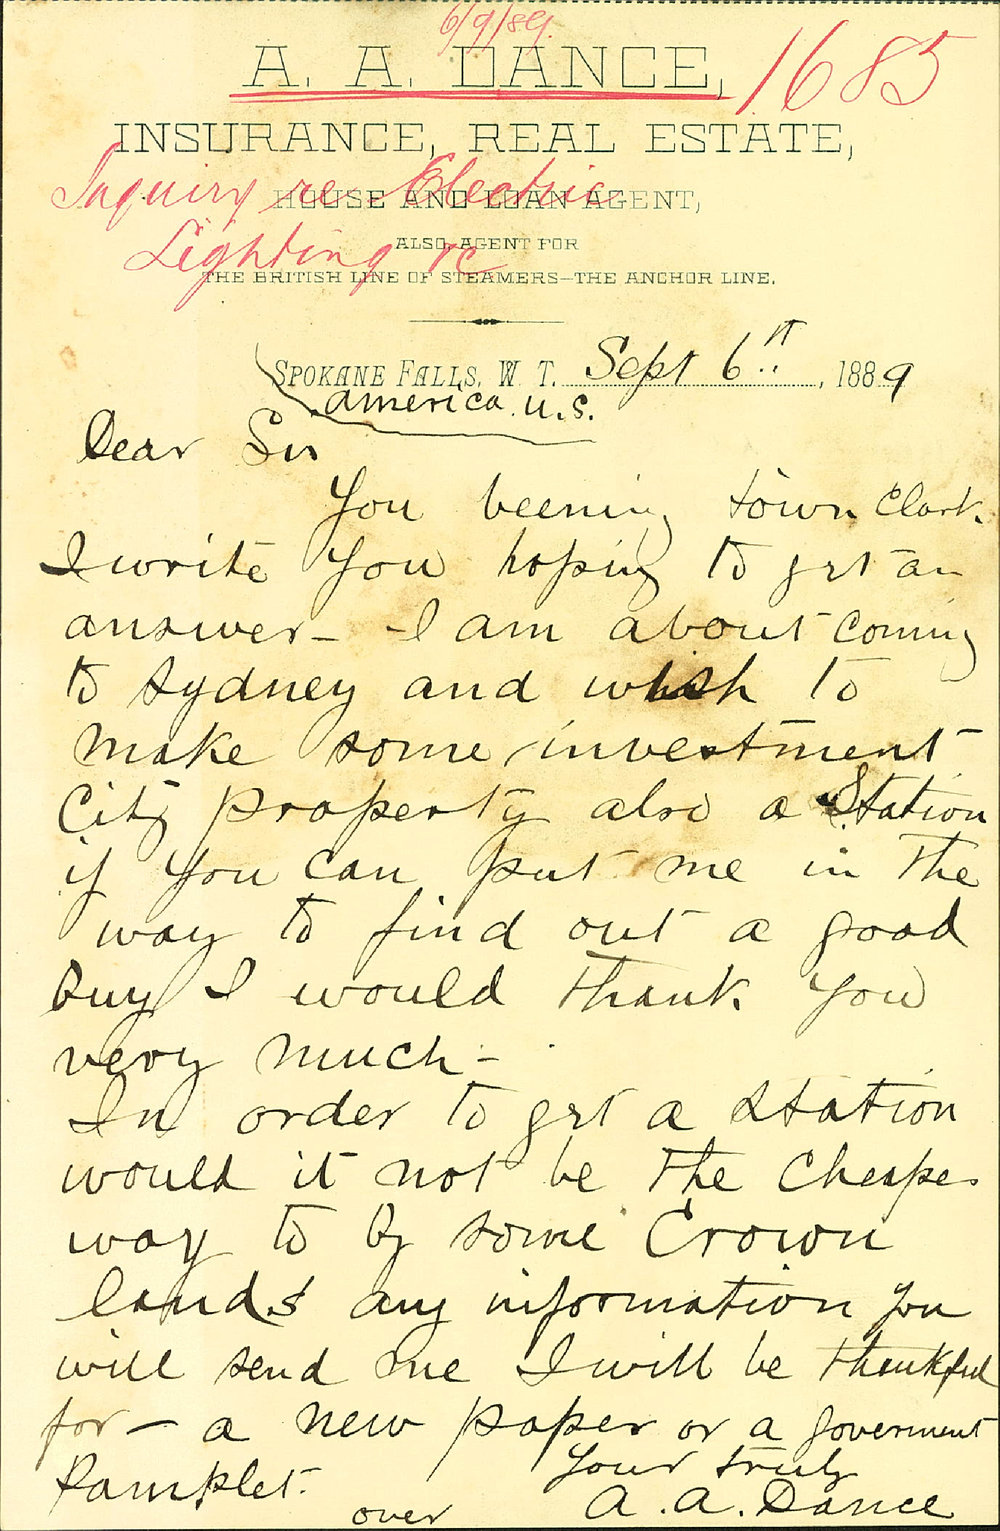 6/9/89.
A. A. DANCE,
1685
INSURANCE, REAL ESTATE,
Inquiry re Electric
HOUSE AND LOAN AGENT,
Lighting &c
ALSO AGENT FOR
THE BRITISH LINE OF STEAMERS—THE ANCHOR LINE.
SPOKANE FALLS, W. T. Sept 6th, 1889
america U.S.
Dear Sir
You beening town Clark.
I write you hoping to get an
answer - I am about coming
to Sydney and wish to
make some investment
City property also a Station
if you can put me in the
way to find out a good
buy I would thank you
very much -
In order to get a station
would it not be the Cheapes
way to by some Crown
lands any information you
will send me I will be thankful
for - a new paper or a goverment
Pamplet.
Your truly
over
A. A. Dance